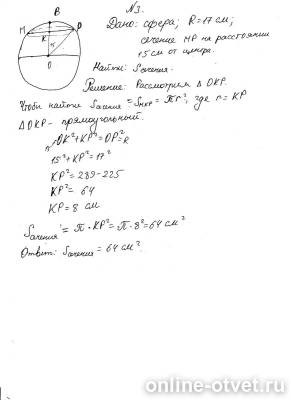 N3.
B
Дано: сфера; R=17 см;
M
P
K
сечение MP на расстоянии
15 см от центра.
O
Найти: Sсечения.
Решение: Рассмотрим Δ OKP.
Чтобы найти Sсечения = Sкр = πr², где r = KP
Δ OKP - прямоугольный.
OK²+KP²=OP²=R
15²+KP²=17²
KP²=289-225
KP²= 64
KP=8 см
Sсечения = π·KP²=π·8²=64 см²
Ответ: Sсечения=64 см².
online-otvet.ru